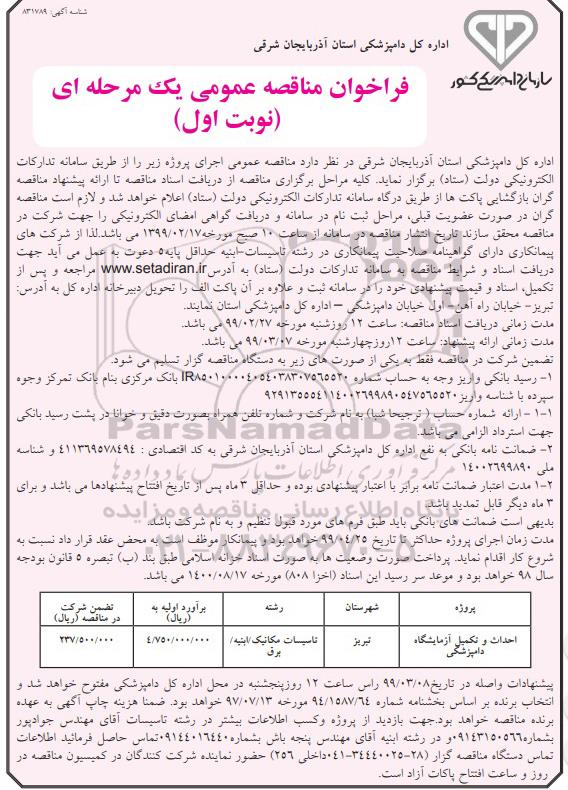 شناسه آگهی: ۸۳۱۷۸۹
سازمان دامپزشکی کشور
اداره کل دامپزشکی استان آذربایجان شرقی
فراخوان مناقصه عمومی یک مرحله ای
(نوبت اول)
اداره کل دامپزشکی استان آذربایجان شرقی در نظر دارد مناقصه عمومی اجرای پروژه زیر را از طریق سامانه تدارکات
الکترونیکی دولت (ستاد) برگزار نماید. کلیه مراحل برگزاری مناقصه از دریافت اسناد مناقصه تا ارائه پیشنهاد مناقصه
گران بازگشایی پاکت ها از طریق درگاه سامانه تدارکات الکترونیکی دولت (ستاد) اعلام خواهد شد و لازم است مناقصه
گران در صورت عضویت قبلی، مراحل ثبت نام در سامانه و دریافت گواهی امضای الکترونیکی را جهت شرکت در
مناقصه محقق سازند تاریخ انتشار مناقصه در سامانه از ساعت ۱۰ صبح مورخه۱۳۹۹/۰۲/۱۷ می باشد.لذا از شرکت های
پیمانکاری دارای گواهینامه صلاحیت پیمانکاری در رشته تاسیسات-ابنیه حداقل پایه۵ دعوت به عمل می آید جهت
دریافت اسناد و شرایط مناقصه به سامانه تدارکات دولت (ستاد) به آدرسwww.setadiran.ir مراجعه و پس از
تکمیل، اسناد و قیمت پیشنهادی خود را در سامانه ثبت و علاوه بر آن پاکت الف را تحویل دبیرخانه اداره کل به آدرس:
تبریز- خیابان راه آهن- اول خیابان دامپزشکی – اداره کل دامپزشکی استان نمایند.
مدت زمانی دریافت اسناد مناقصه: ساعت ۱۲ روزشنبه مورخه ۹۹/۰۲/۲۷ می باشد.
مدت زمانی ارائه پیشنهاد: ساعت ۱۲روزچهارشنبه مورخه ۹۹/۰۳/۰۷ می باشد.
تضمین شرکت در مناقصه فقط به یکی از صورت های زیر به دستگاه مناقصه گزار تسلیم می شود.
۱- رسید بانکی واریز وجه به حساب شماره IR۸۵۰۱۰۰۰۰۴۰۵۴۰۳۸۳۰۷۵۶۵۵۲۰ بانک مرکزی بنام بانک تمرکز وجوه
سپرده با شناسه واریز۹۲۹۱۳۵۵۵۴۱۱۴۰۰۲۶۹۹۸۹۰۵۴۷۵۶۵۵۲۰
۱-۱ - ارائه شماره حساب ( ترجیحا شبا) به نام شرکت و شماره تلفن همراه بصورت دقیق و خوانا در پشت رسید بانکی
جهت استرداد الزامی می باشد.
۲- ضمانت نامه بانکی به نفع اداره کل دامپزشکی استان آذربایجان شرقی به کد اقتصادی : ۴۱۱۳۶۹۵۷۸۴۹۴ و شناسه
ملی ۱۴۰۰۲۶۹۹۸۹۰
۲-۱ مدت اعتبار ضمانت نامه برابر با اعتبار پیشنهادی بوده و حداقل ۳ ماه پس از تاریخ افتتاح پیشنهادها می باشد و برای
۳ ماه دیگر قابل تمدید باشد.
بدیهی است ضمانت های بانکی باید طبق فرم های مورد قبول تنظیم و به نام شرکت باشد.
مدت زمان اجرای پروژه حداکثر تا تاریخ ۹۹/۰۴/۲۵ خواهد بود و پیمانکار موظف است به محض عقد قرار داد نسبت به
شروع کار اقدام نماید. پرداخت صورت وضعیت ها به صورت اسناد خزانه اسلامی طبق بند (ب) تبصره ۵ قانون بودجه
سال ۹۸ خواهد بود و موعد سر رسید این اسناد (اخزا ۸۰۸) مورخه ۱۴۰۰/۰۸/۱۷ می باشد.
پروژه شهرستان رشته برآورد اولیه به (ریال) تضمن شرکت در مناقصه (ریال)
احداث و تکمیل آزمایشگاه دامپزشکی تبریز تاسیسات مکانیک/ابنیه/ برق ۴/۷۵۰/۰۰۰/۰۰۰ ۲۳۷/۵۰۰/۰۰۰
پیشنهادات واصله در تاریخ۹۹/۰۳/۰۸ راس ساعت ۱۲ روزپنجشنبه در محل اداره کل دامپزشکی مفتوح خواهد شد و
انتخاب برنده بر اساس بخشنامه شماره ۹۴/۱۵۸۷/۶۴ مورخه ۹۷/۰۷/۱۳ خواهد بود. ضمنا هزینه چاپ آگهی به عهده
برنده مناقصه خواهد بود.جهت بازدید از پروژه وکسب اطلاعات بیشتر در رشته تاسیسات آقای مهندس جوادپور
بشماره۰۹۱۴۳۱۵۰۵۶۶و در رشته ابنیه آقای مهندس پنجه باش بشماره۰۹۱۴۴۰۱۶۴۴۰تماس حاصل فرمائید اطلاعات
تماس دستگاه مناقصه گزار (۲۸-۳۴۴۴۰۰۲۵-۰۴۱داخلی ۲۵۶) حضور نماینده شرکت کنندگان در کمیسیون مناقصه در
روز و ساعت افتتاح پاکات آزاد است.
ParsNamadData
مرکز فرآوری اطلاعات پارس نماد داده ها
پایگاه اطلاع رسانی مناقصه و مزایده
۰۲۱-۸۸۳۴۹۶۷۰-۵